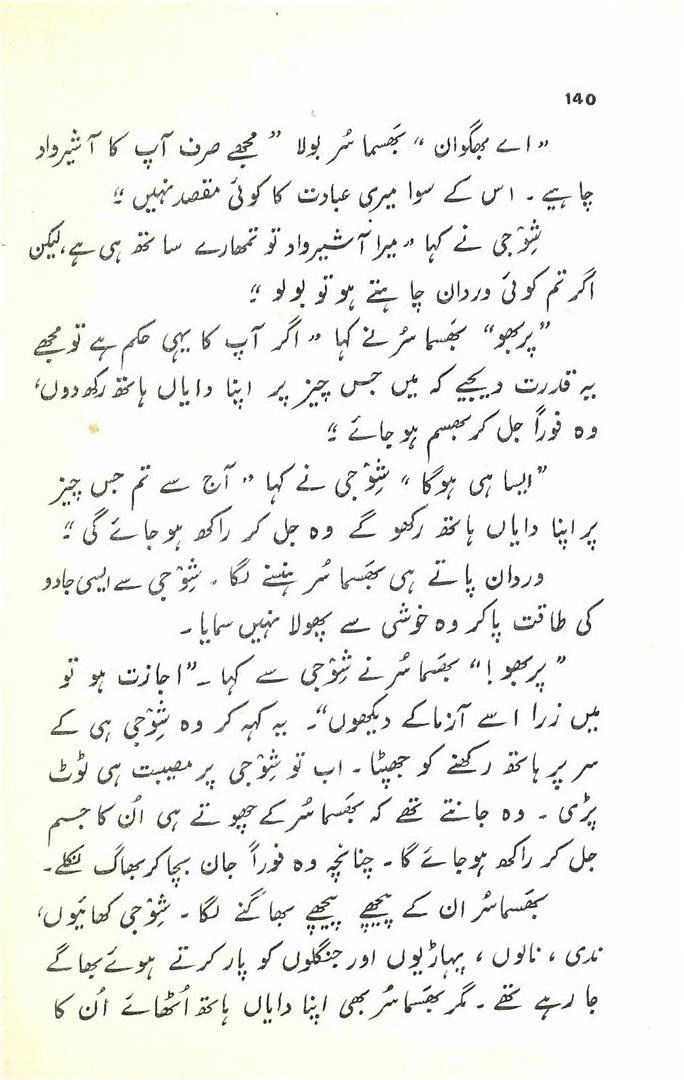 140
”اے بھگوان“ بھَسماسُر بولا ”مجھے صرف آپ کا آشیرواد
چاہیے۔ اس کے سوا میری عبادت کا کوئی مقصد نہیں“
شِوْجی نے کہا ”میرا آشیرواد تو تمھارے ساتھ ہی ہے، لیکن
اگر تم کوئی وردان چاہتے ہو تو بولو“
”پربھو“ بھَسماسُر نے کہا ”اگر آپ کا یہی حکم ہے تو مجھے
یہ قدرت دیجیے کہ میں جس چیز پر اپنا دایاں ہاتھ رکھ دوں،
وہ فوراً جل کر بھسم ہو جائے“
”ایسا ہی ہوگا“ شِوْجی نے کہا ”آج سے تم جس چیز
پر اپنا دایاں ہاتھ رکھو گے وہ جل کر راکھ ہو جائے گی“
وردان پاتے ہی بھَسماسُر ہنسنے لگا۔ شِوْجی سے ایسی جادو
کی طاقت پاکر وہ خوشی سے پھولا نہیں سمایا۔
”پربھو!“ بھَسماسُر نے شِوْجی سے کہا۔ ”اجازت ہو تو
میں زرا اسے آزما کے دیکھوں“۔ یہ کہہ کر وہ شِوْجی ہی کے
سر پر ہاتھ رکھنے کو جھپٹا۔ اب تو شِوْجی پر مصیبت ہی ٹوٹ
پڑی۔ وہ جانتے تھے کہ بھَسماسُر کے چھوتے ہی اُن کا جسم
جل کر راکھ ہوجائے گا۔ چنانچہ وہ فوراً جان بچا کر بھاگ نکلے۔
بھَسماسُر ان کے پیچھے پیچھے بھاگنے لگا۔ شِوْجی کھائیوں،
ندی، نالوں، پہاڑیوں اور جنگلوں کو پار کرتے ہوئے بھاگے
جا رہے تھے۔ مگر بھَسماسُر بھی اپنا دایاں ہاتھ اُٹھائے اُن کا